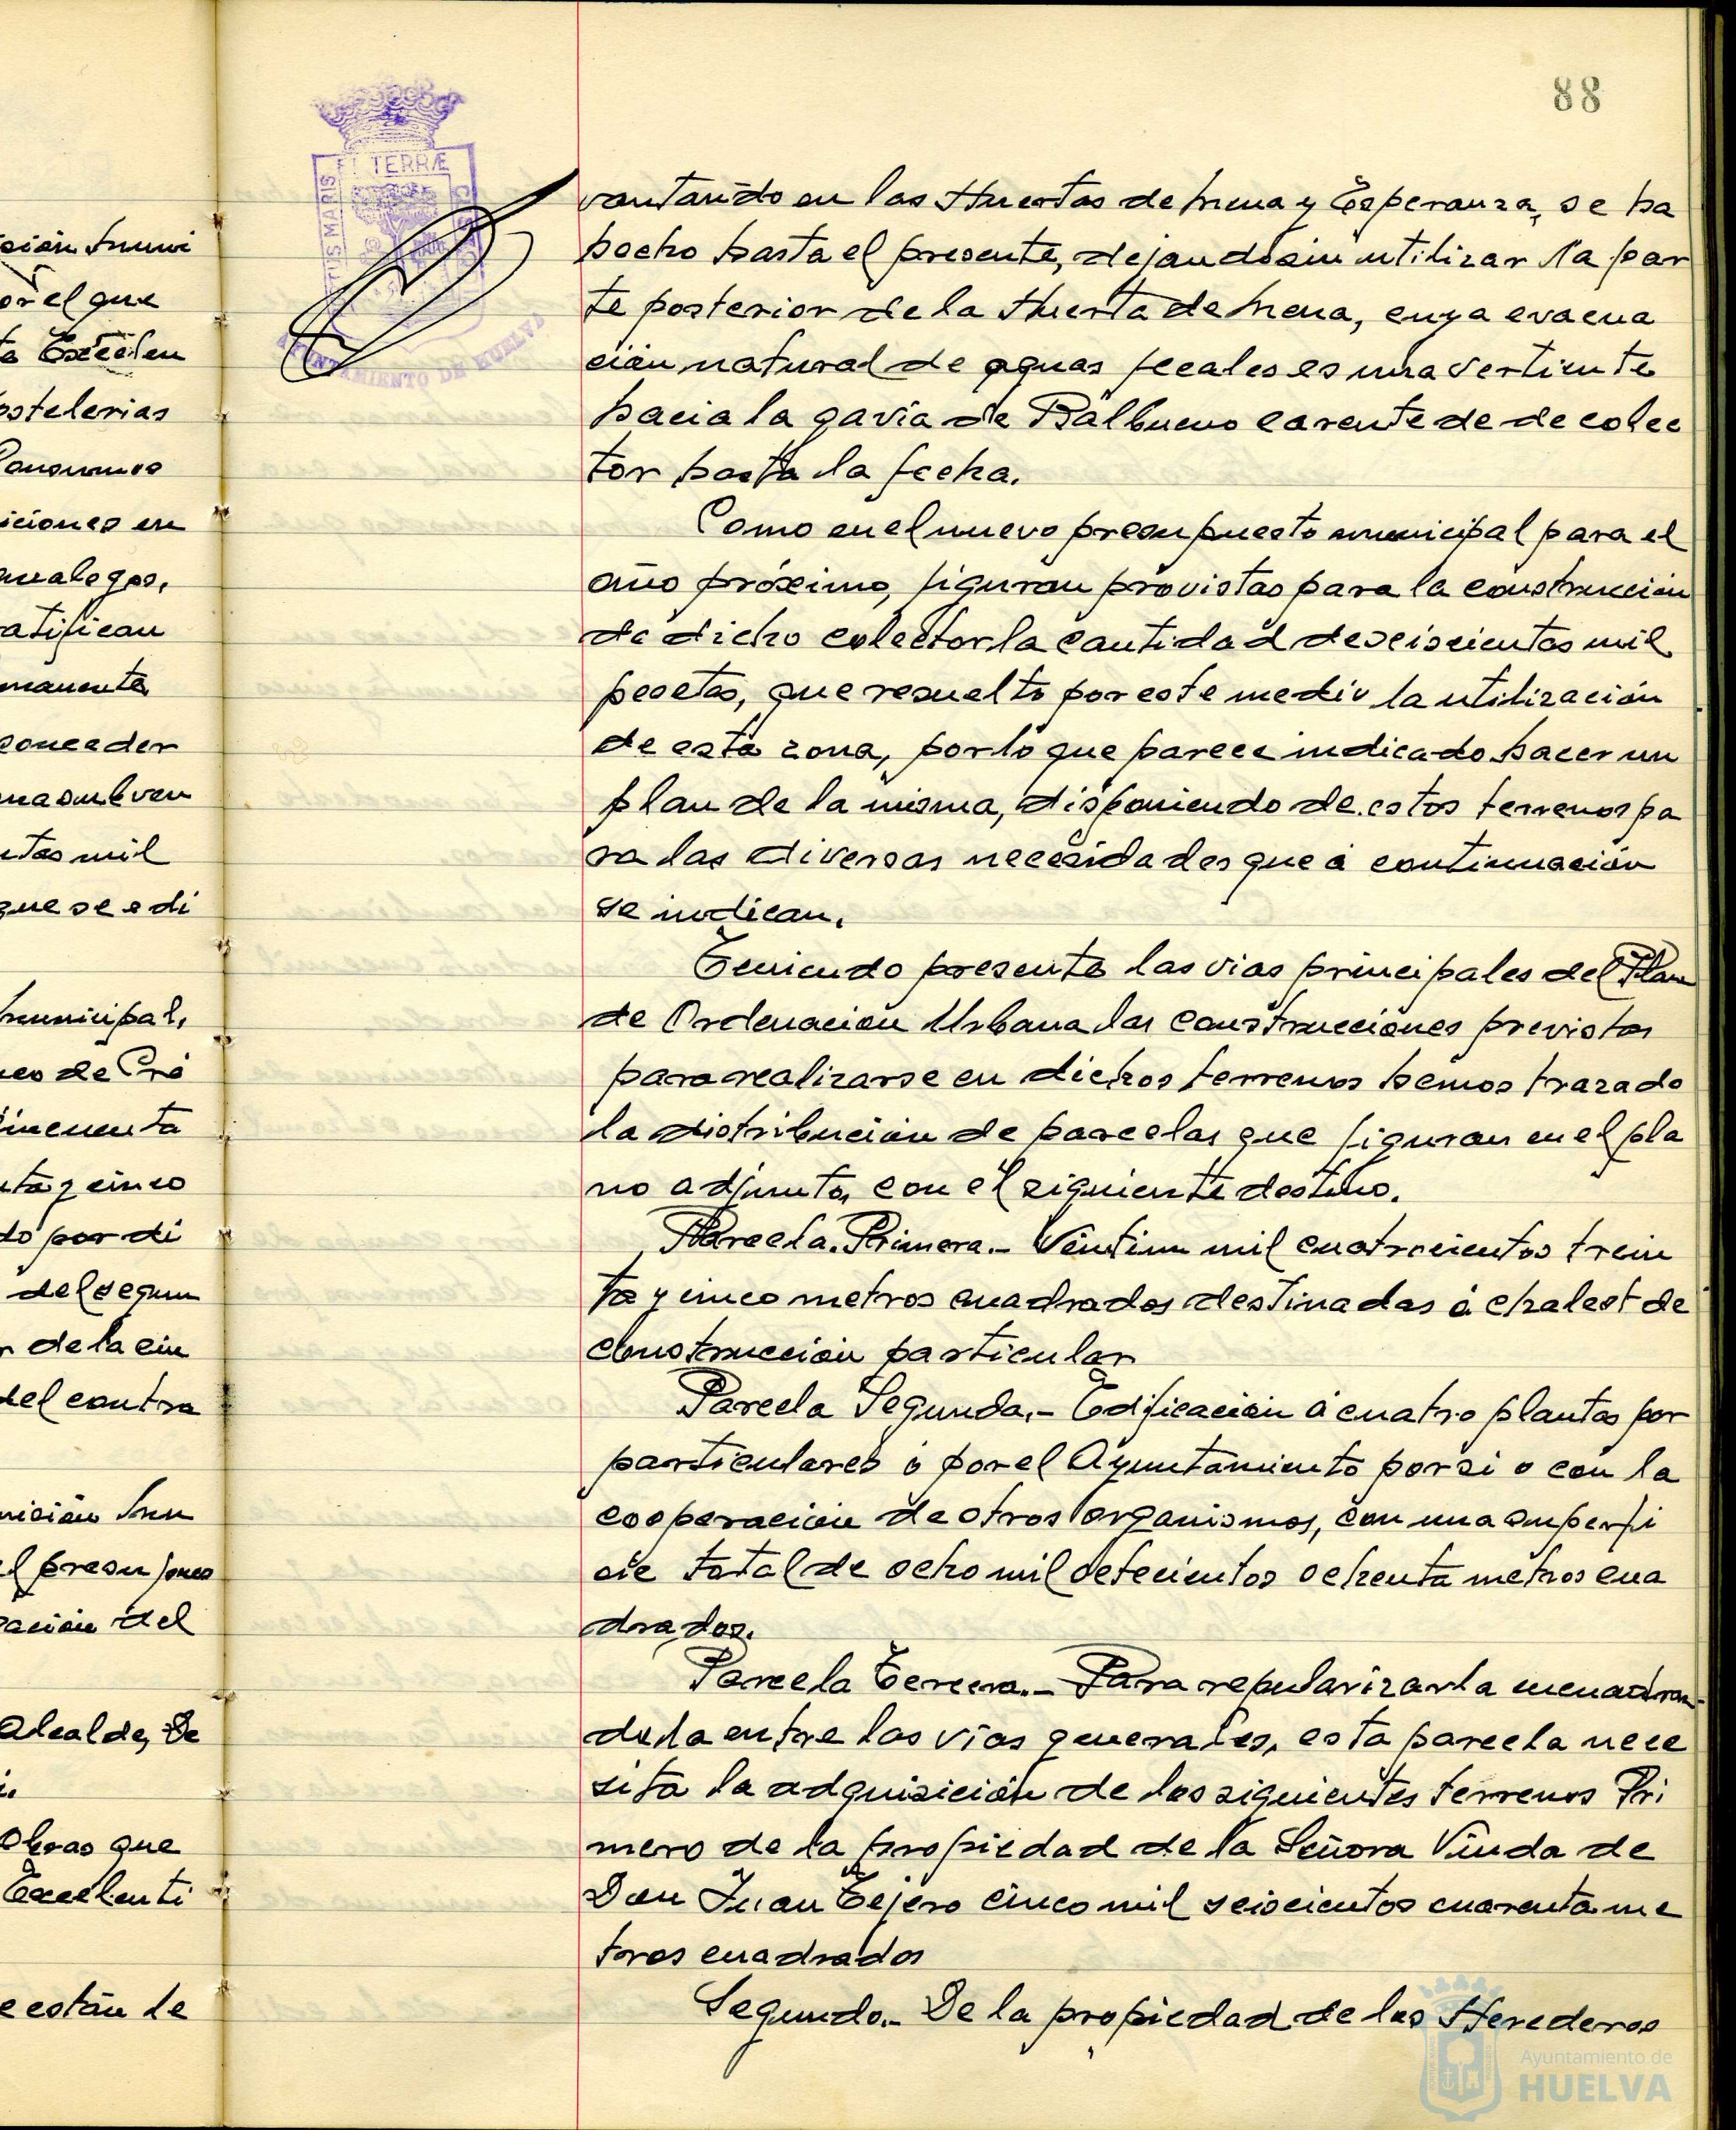 88
ET TERRÆ
MARIS
AYUNTAMIENTO DE HUELVA
vantando en las Huertas de Mena y Esperanza, se ha
hecho hasta el presente, dejando sin utilizar la par
te posterior de la Huerta de Mena, cuya evacua
ción natural de aguas fecales es una vertiente
hacia la gavia de Balbueno carente de de colec
tor hasta la fecha.
Como en el nuevo presupuesto municipal para el
año próximo, figuran provistas para la construcción
de dicho colector la cantidad de seiscientas mil
pesetas, que resuelto por este medio la utilización
de esta zona, por lo que parece indicado hacer un
plan de la misma, disponiendo de estos terrenos pa
ra las diversas necesidades que á continuación
se indican.
Teniendo presente las vias principales del Plan
de Ordenación Urbana las construcciones previstas
para realizarse en dichos terrenos hemos trazado
la distribución de parcelas que figuran en el pla
no adjunto, con el siguiente destino.
Parcela Primera.- Veintiun mil cuatrocientos trein
ta y cinco metros cuadrados destinadas á chalest de
construcción particular
Parcela Segunda.- Edificación á cuatro plantas por
particulares ó por el Ayuntamiento por si o con la
cooperación de otros organismos, con una superfi
cie total de ocho mil setecientos ochenta metros cua
drados.
Parcela Tercera.- Para regularizarla encuadran-
dola entre las vías generales, esta parcela nece
sita la adquisición de los siguientes terrenos Pri
mero de la propiedad de la Señora Viuda de
Don Juan Tejero cinco mil seiscientos cuarenta me
tros cuadrados
Segundo.- De la propiedad de los Herederos
or el que
ostelerias
iciones en
atifican
manente
conceder
utas mil
que se edi
municipal,
eo de Pré
incuenta
nta y cinco
do por di
del segun
r de la cin
del contra
el presupues
ación del
Alcalde, De
Obras que
Excelenti
e están le
Ayuntamiento de
HUELVA